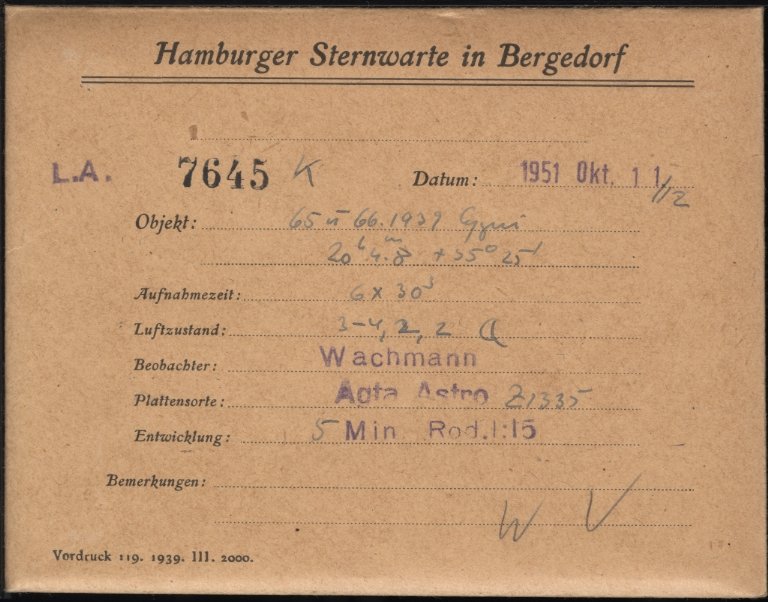 Hamburger Sternwarte in Bergedorf
L.A. 7645 K Datum: 1951 Okt. 11/12
Objekt: 65 u 66.1939 Cygni
20h 4.m8 +35° 25'
Aufnahmezeit: 6 x 30s
Luftzustand: 3-4, 2, 2
Beobachter: Wachmann
Plattensorte: Agfa Astro Z1335
Entwicklung: 5 Min. Rod.1:15
Bemerkungen:
W V
Vordruck 119. 1939. III. 2000.